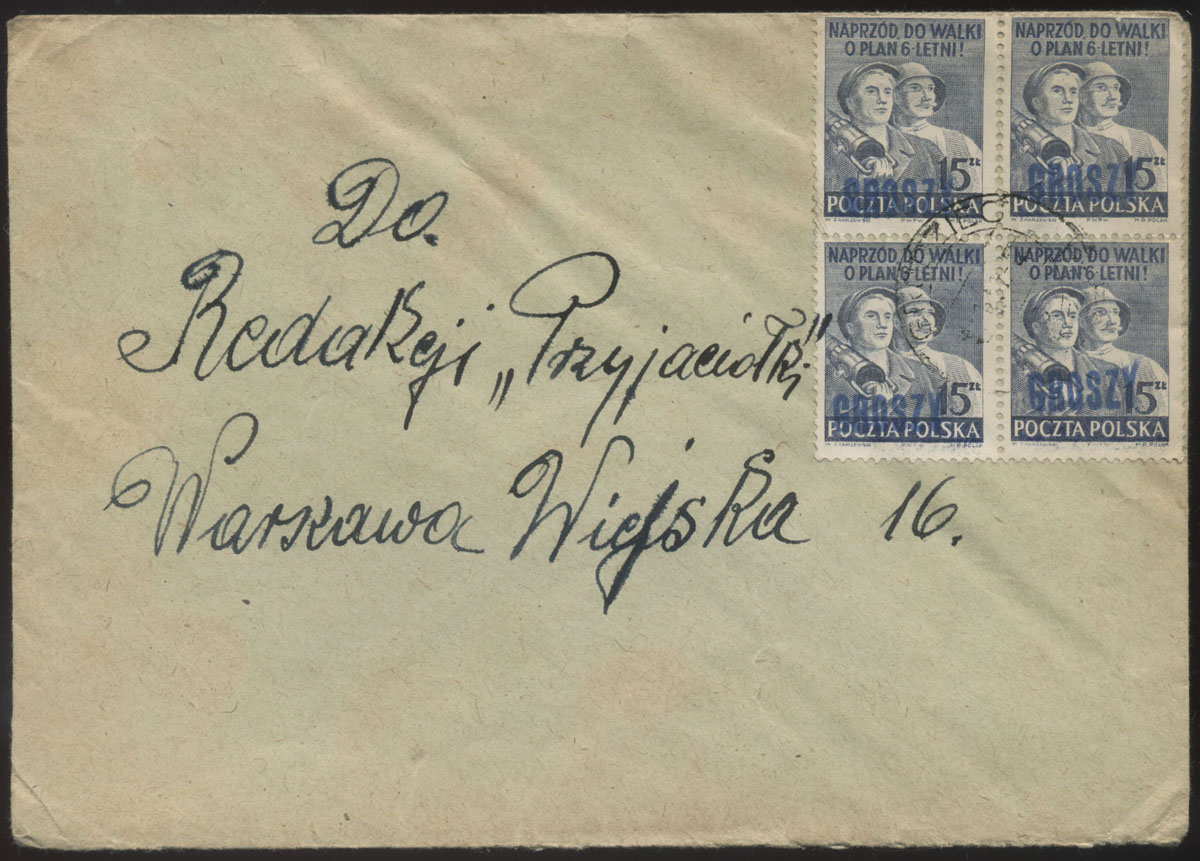 NAPRZÓD, DO WALKI
O PLAN 6-LETNI!
15 ZŁ
GROSZY
POCZTA POLSKA
NAPRZÓD, DO WALKI
O PLAN 6-LETNI!
15 ZŁ
GROSZY
POCZTA POLSKA
NAPRZÓD, DO WALKI
O PLAN 6-LETNI!
15 ZŁ
GROSZY
POCZTA POLSKA
NAPRZÓD, DO WALKI
O PLAN 6-LETNI!
15 ZŁ
GROSZY
POCZTA POLSKA
Do.
Redakcji „Przyjaciółki”
Warszawa Wiejska 16.